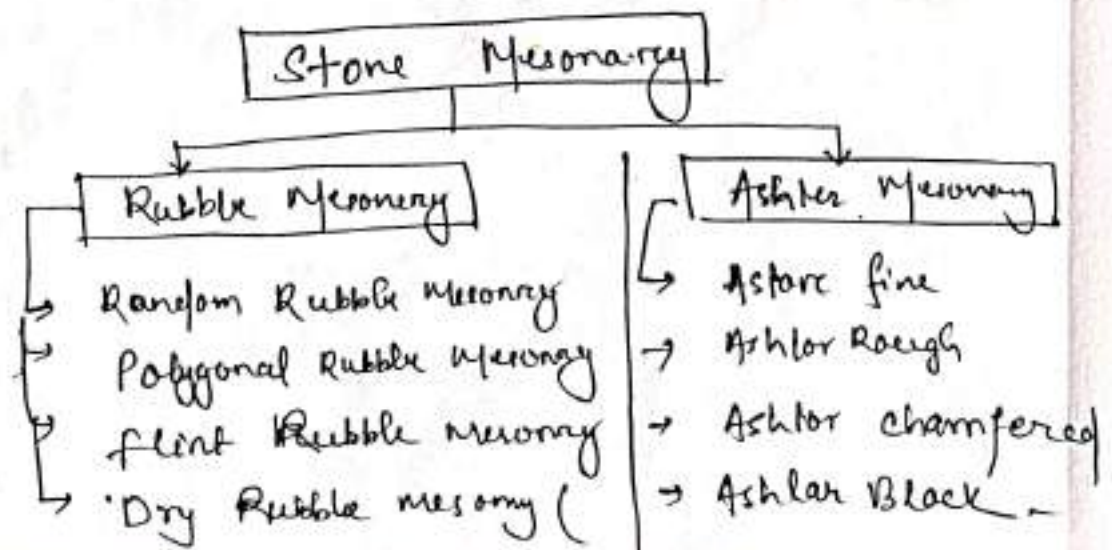 Stone Mesonarey
Rubble Mesonery
Random Rubble Mesonry
Polygonal Rubble Mesonry
flint Rubble mesonry
Dry Rubble mesomy (
Ashter Mesonary
Astarc fine
Ashlor Rough
Ashtor chamfered
Ashlar Black -